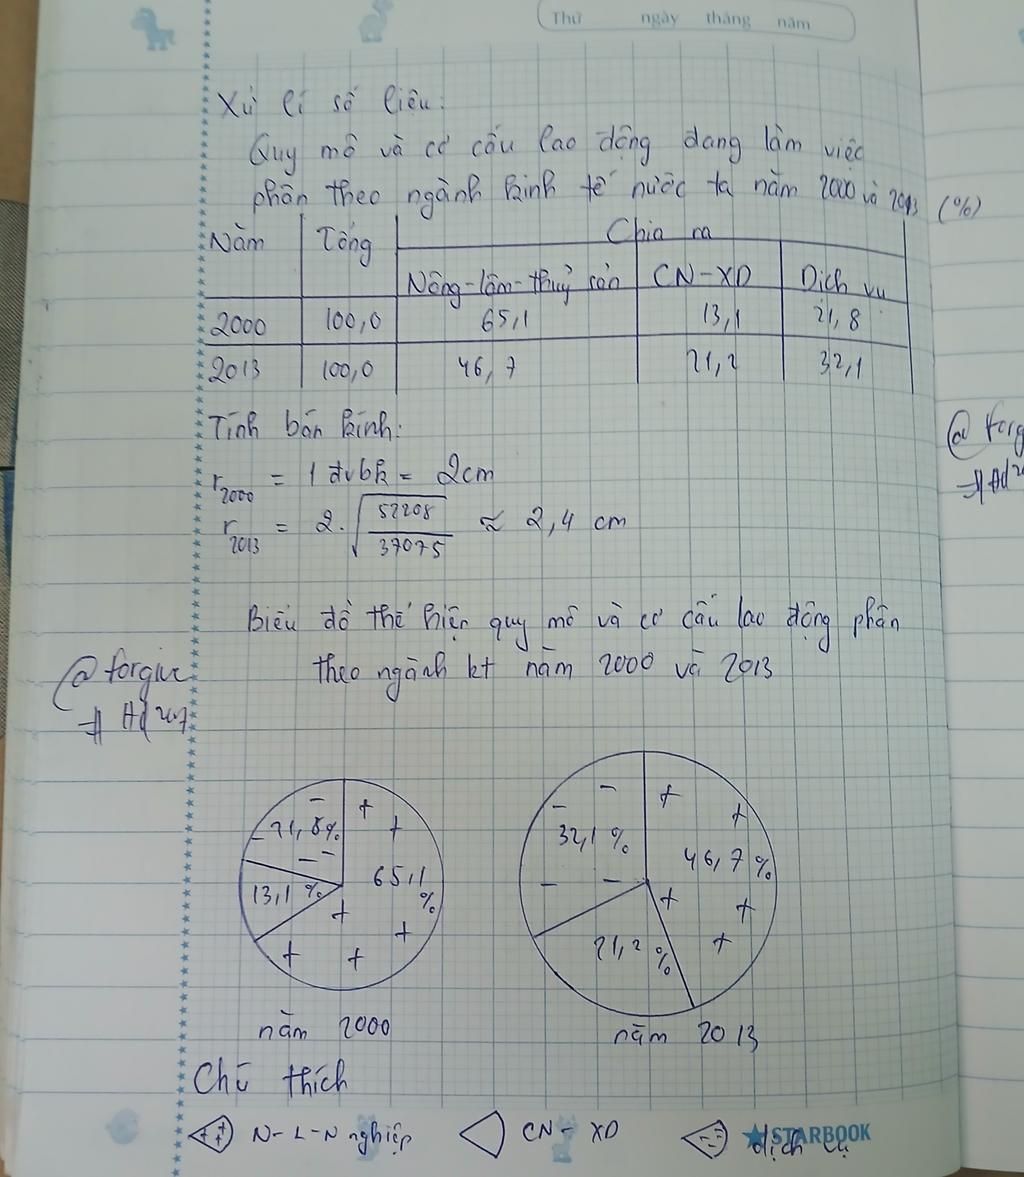 Thứ ngày tháng năm
Xử lí số liệu:
Quy mô và cơ cấu lao động đang làm việc
phân theo ngành kinh tế nước ta năm 2000 và 2013 (%)
Năm Tổng Chia ra
Nông-lâm-thuỷ sản CN-XD Dịch vụ
2000 100,0 65,1 13,1 21,8
2013 100,0 46,7 21,2 32,1
Tính bán kính:
r2000 = 1 đvbk = 2cm
r2013 = 2.√(52208/37075) ≈ 2,4 cm
Biểu đồ thể hiện quy mô và cơ cấu lao động phân
theo ngành kt năm 2000 và 2013
@forgive
21,8% 65,1%
13,1%
32,1% 46,7%
21,2%
năm 2000 năm 2013
Chú thích
N-L-N nghiệp CN-XD dịch vụ
STARBOOK